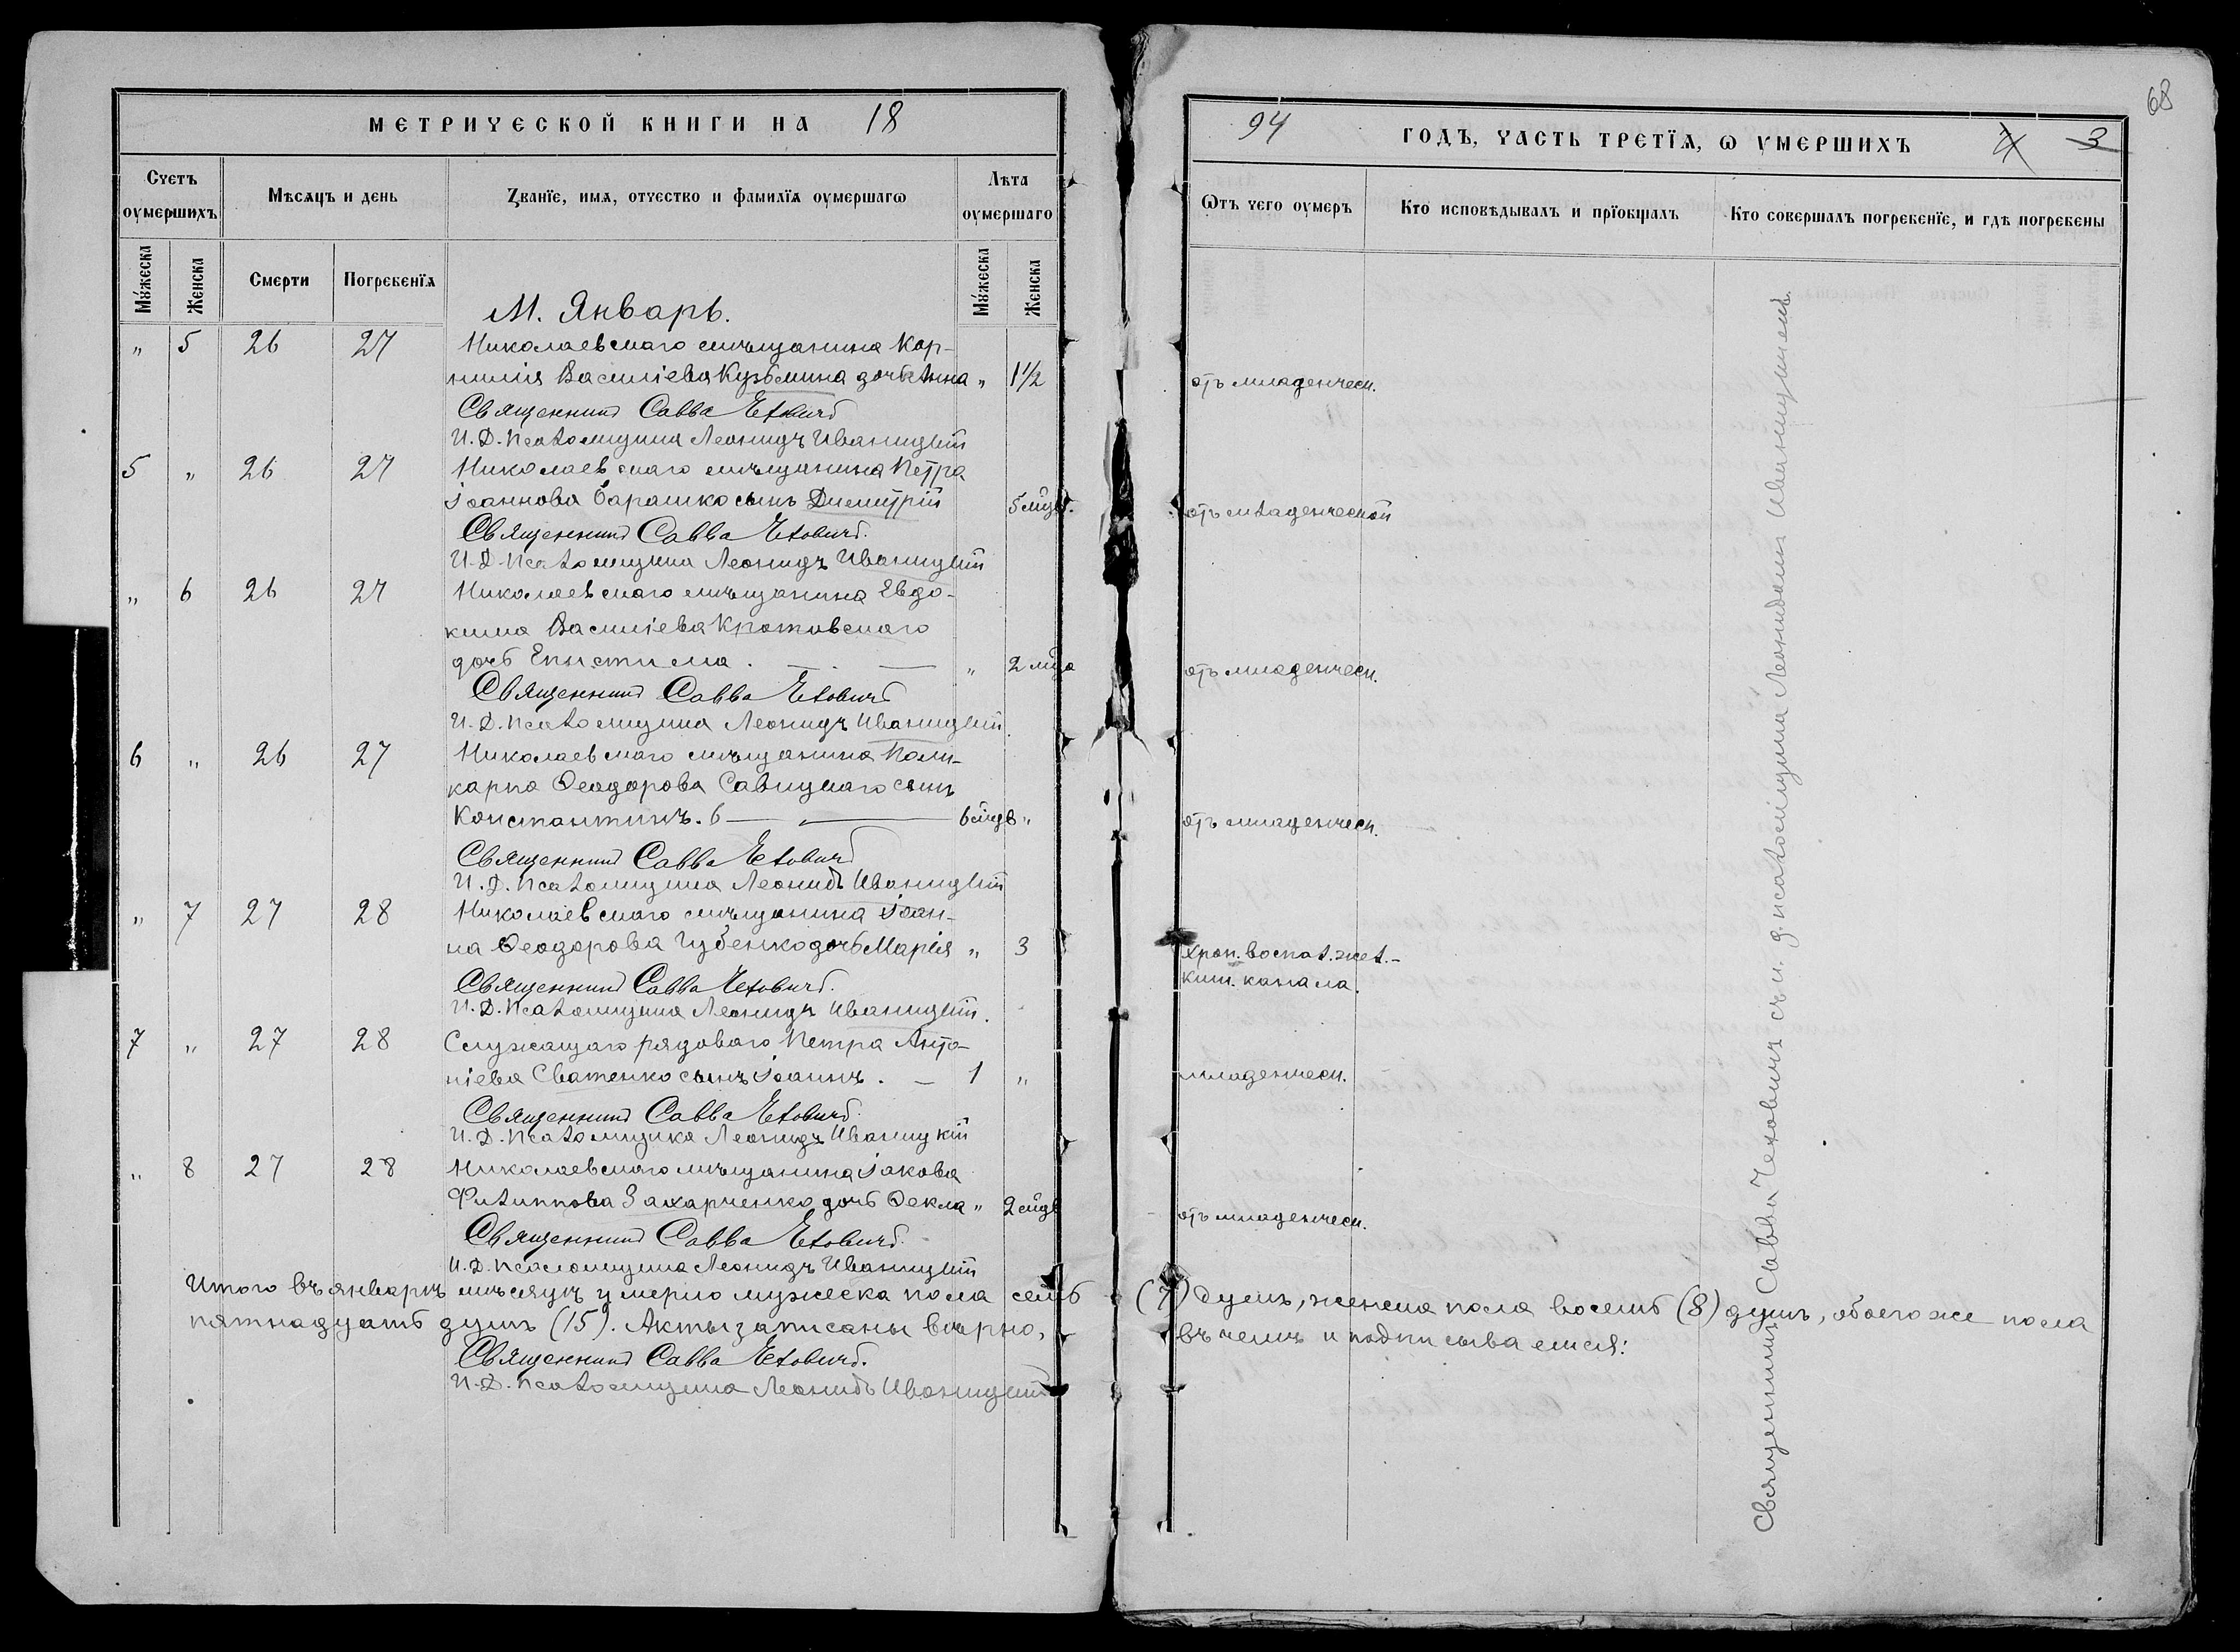 МЕТРИЧЕСКОЙ КНИГИ НА 18
Счетъ оумершихъ
Мѣсяцъ и день
Званїе, имя, отчество и фамилїя оумершагѡ
Лѣта оумершаго
Мужеска
Женска
Смерти
Погребенїя
Мужеска
Женска
М. Январь.
„ 5 26 27 Николаевскаго мѣщанина Кор-
нилія Василіева Кузьмина дочь Анна „ 1 1/2
Священникъ Савва Чеховичъ
И. Д. Псаломщика Леонидъ Иваницкій
5 „ 26 27 Николаевскаго мѣщанина Петра
Іоаннова Барашко сынъ Димитрій 5 мцв.
Священникъ Савва Чеховичъ.
И. Д. Псаломщика Леонидъ Иваницкій
„ 6 26 27 Николаевскаго мѣщанина Евдо-
кима Василіева Кротовскаго
дочь Епистима . — . — „ 2 мца
Священникъ Савва Чеховичъ
И. Д. Псаломщика Леонидъ Иваницкій.
6 „ 26 27 Николаевскаго мѣщанина Поли-
карпа Ѳеодорова Савицкаго сынъ
Константинъ. 6 — — 6 мцв „
Священникъ Савва Чеховичъ
И. Д. Псаломщика Леонидъ Иваницкій
„ 7 27 28 Николаевскаго мѣщанина Іоан-
на Ѳеодорова Губенко дочь Марія „ 3
Священникъ Савва Чеховичъ.
И. Д. Псаломщика Леонидъ Иваницкій.
7 „ 27 28 Служащаго рядоваго Петра Анто-
ніева Сватенко сынъ Іоаннъ . — 1 „
Священникъ Савва Чеховичъ.
И. Д. Псаломщика Леонидъ Иваницкій
„ 8 27 28 Николаевскаго мѣщанина Іакова
Филиппова Захарченко дочь Ѳекла „ 2 мцв
Священникъ Савва Чеховичъ.
И. Д. Псаломщика Леонидъ Иваницкій
Итого въ январѣ мѣсяцѣ умерло мужеска пола семь
пятнадцать душъ (15). Акты записаны вѣрно,
Священникъ Савва Чеховичъ.
И. Д. Псаломщика Леонидъ Иваницкій
68
94 ГОДЪ, ЧАСТЬ ТРЕТЇЯ, Ѡ УМЕРШИХЪ 3
Ѡтъ чего оумеръ
Кто исповѣдывалъ и прїобщалъ
Кто совершалъ погребенїе, и гдѣ погребены
отъ младенческ.
отъ младенческой
отъ младенческ.
отъ младенческ.
Хрон. воспал. жел.-
киш. канала.
младенческ.
отъ младенческ.
Священникъ Савва Чеховичъ съ и. д. псаломщика Леонидомъ Иваницкимъ.
(7) душъ, женска пола восемь (8) душъ, обоего же пола
въ чемъ и подписываемся: